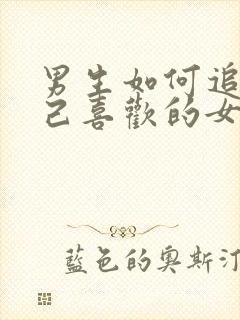 男生如何追
己喜歡的女
藍色的奥斯汀